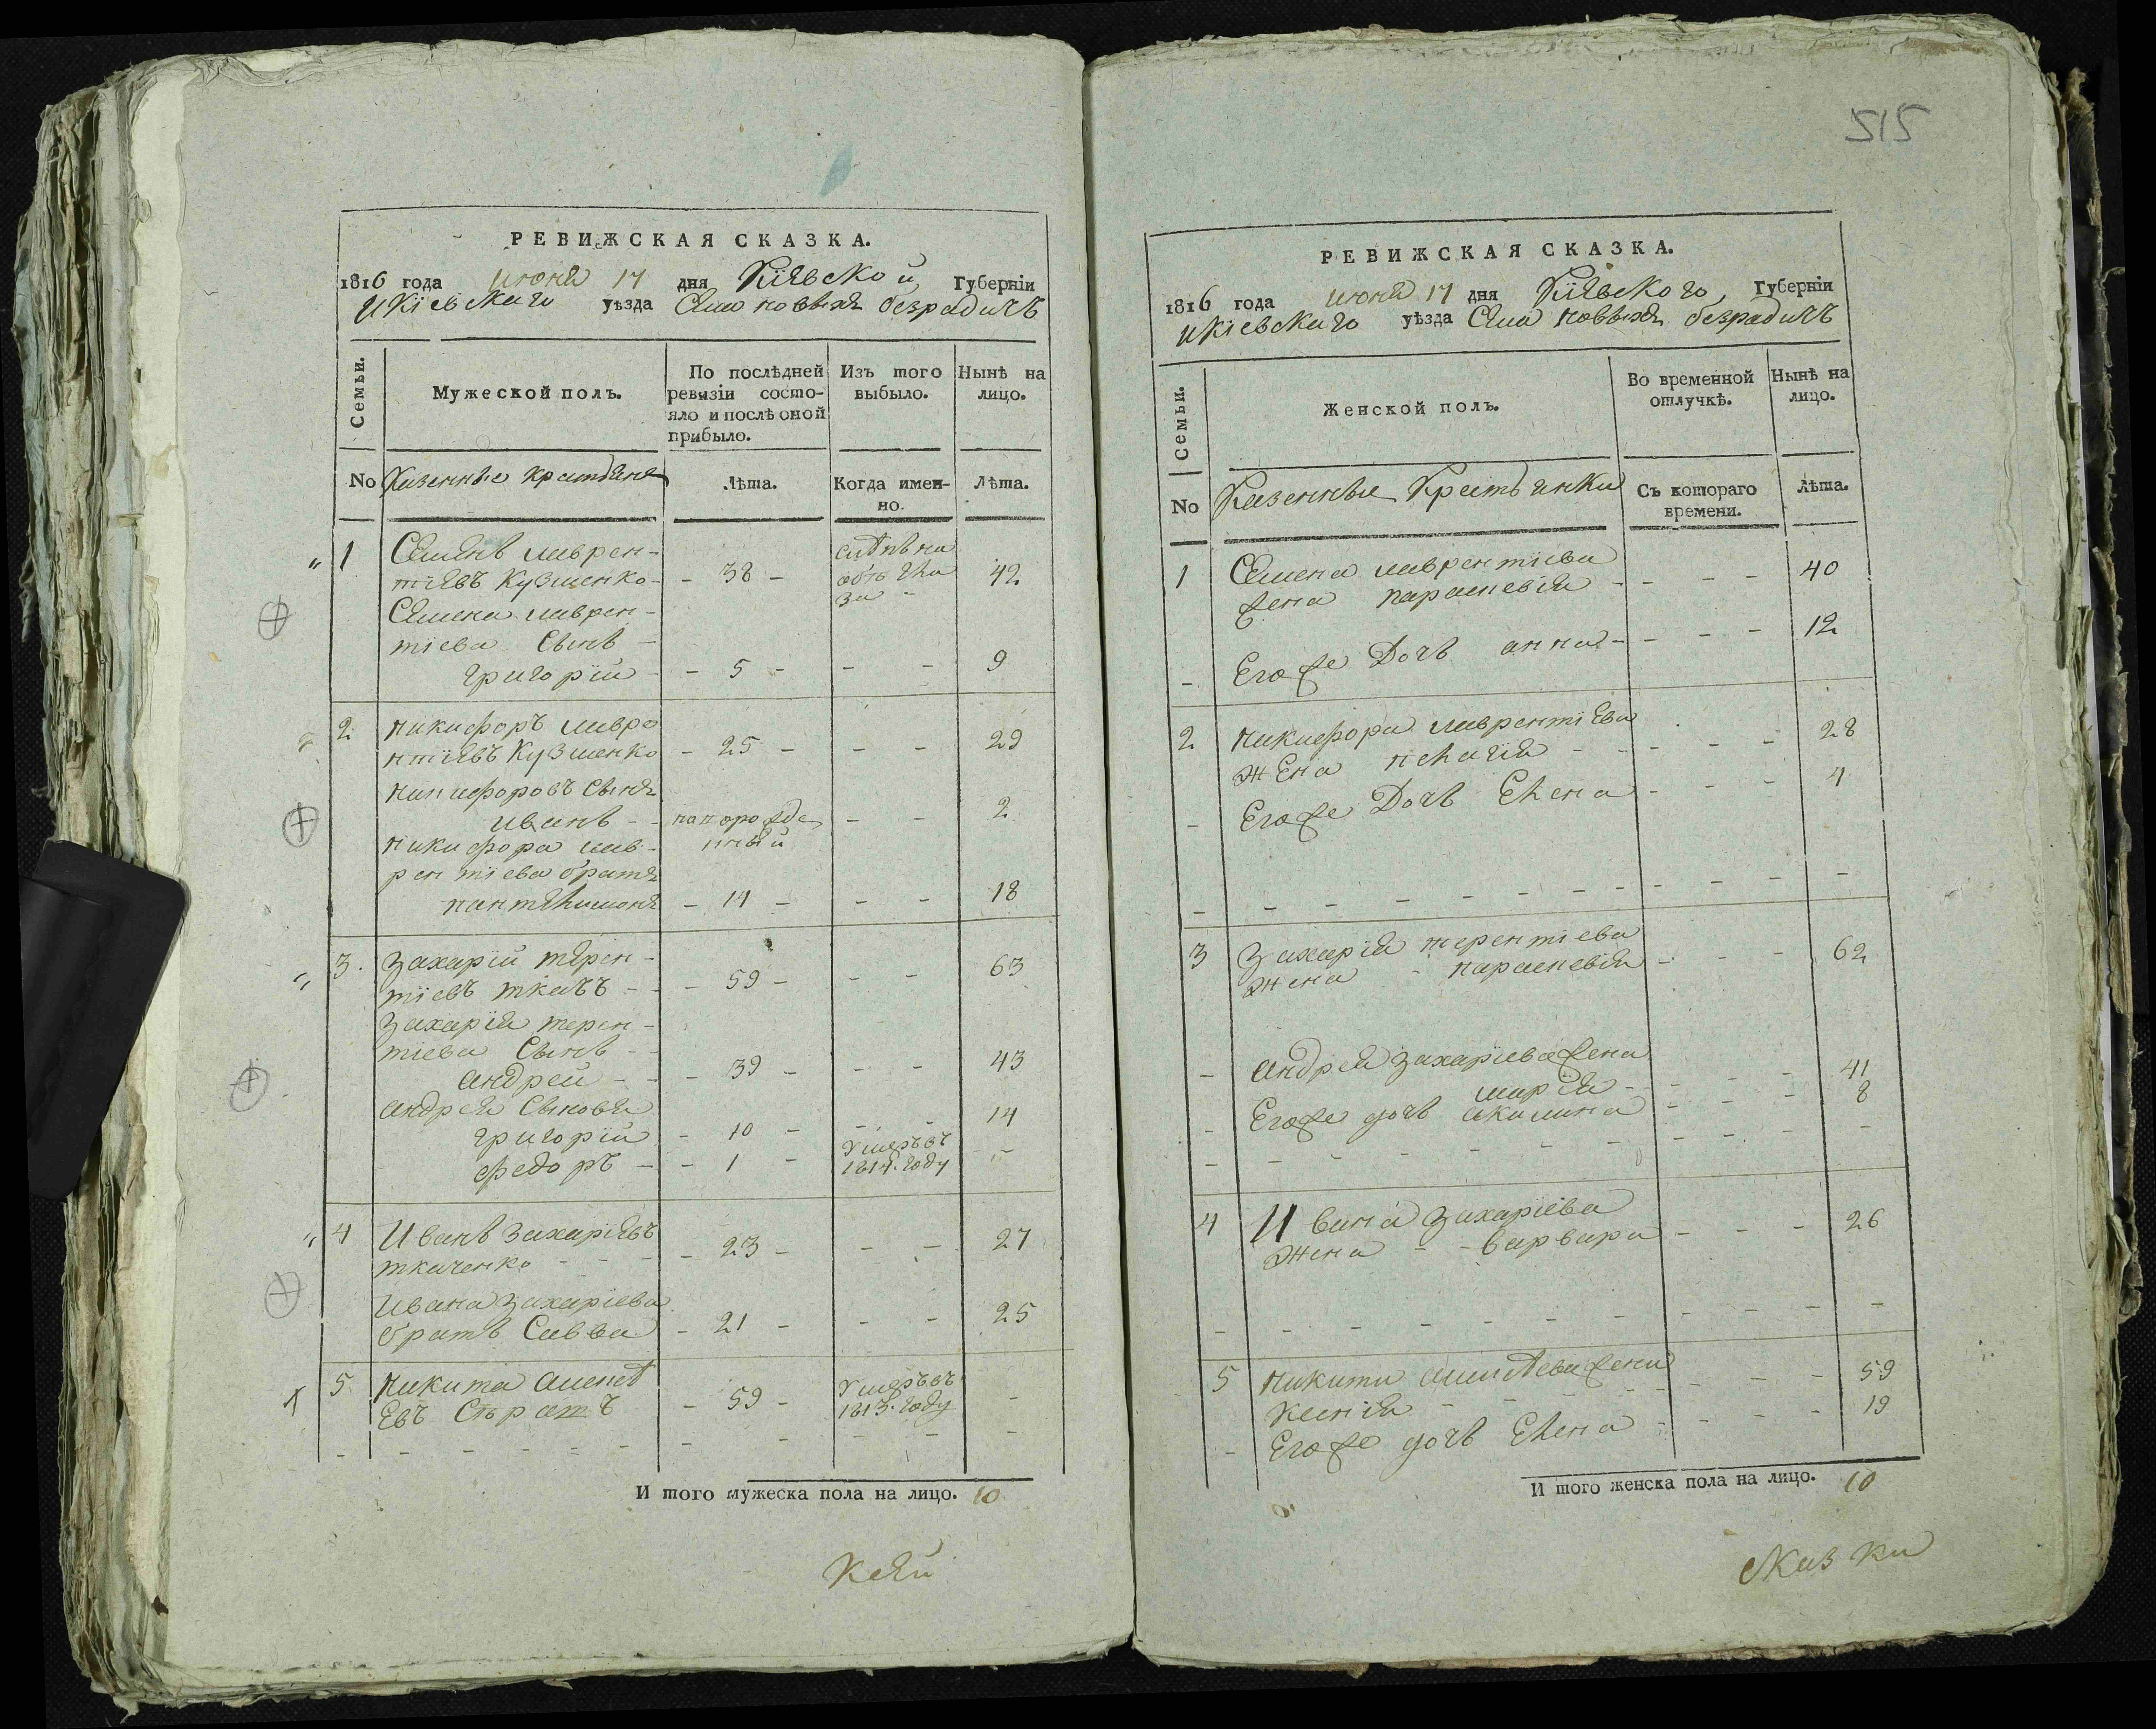 РЕВИЖСКАЯ СКАЗКА.
1816 года июня 17 дня Кіевской Губерніи
и Кіевскаго уѣзда Села новыхъ безрадичъ
Семьи.
Мужеской полъ.
По послѣдней ревизіи состо-
яло и послѣ оной
прибыло.
Изъ того
выбыло.
Нынѣ на
лицо.
No
Казенные крестьяне
Лѣта.
Когда имен-
но.
Лѣта.
1 Семенъ лаврен-
тіевъ Кузменко - 38 - 42
Семена лаврен-
тіева Сынъ -
григорій - 5 - - - 9
2 никифоръ лавре
нтіевъ Кузменко - 25 - - - 29
никифоровъ Сынъ
иванъ - - новорожде - - 2
нный
никифора лав-
рентіева братъ
пантелимонъ - 14 - - - 18
3. захарій терен-
тіевъ ткачъ - - 59 - - - 63
захарія терен-
тіева Сынъ - -
андрей - - 39 - - - 43
андрея Сыновья
григорій - 10 - - - 14
федоръ - - 1 - умеръ въ
1814. году -
4 Иванъ захаріевъ
ткаченко - - - 23 - - - 27
ивана захаріева
братъ Савва - 21 - - - 25
5 никита
евъ - 59 - умеръ въ
1813. году -
И того мужеска пола на лицо. 10
515
РЕВИЖСКАЯ СКАЗКА.
1816 года июня 17 дня Кіевского, Губерніи
и кіевскаго уѣзда Села новыхъ безрадичъ
Семьи.
Женской полъ.
Во временной
отлучкѣ.
Нынѣ на
лицо.
No
Казенные Крестьянки
Съ котораго
времени.
Лѣта.
1 Семена лаврентіева
жена параскевія - - - - 40
- Его же Дочь анна - - - - 12
2 никифора лаврентіева
жена пелагія - - - - 28
- Его же Дочь Елена - - - 4
3 захарія терентіева
жена - параскевія - - - 62
- андрея захаріева жена
марія - - - - 41
- Его же дочь акилина - - - 8
4 Ивана захаріева
жена - - варвара - - - 26
5 никиты жена
ксенія - - - - 59
- Его же дочь Елена - - - - 19
И того женска пола на лицо. 10
сказки